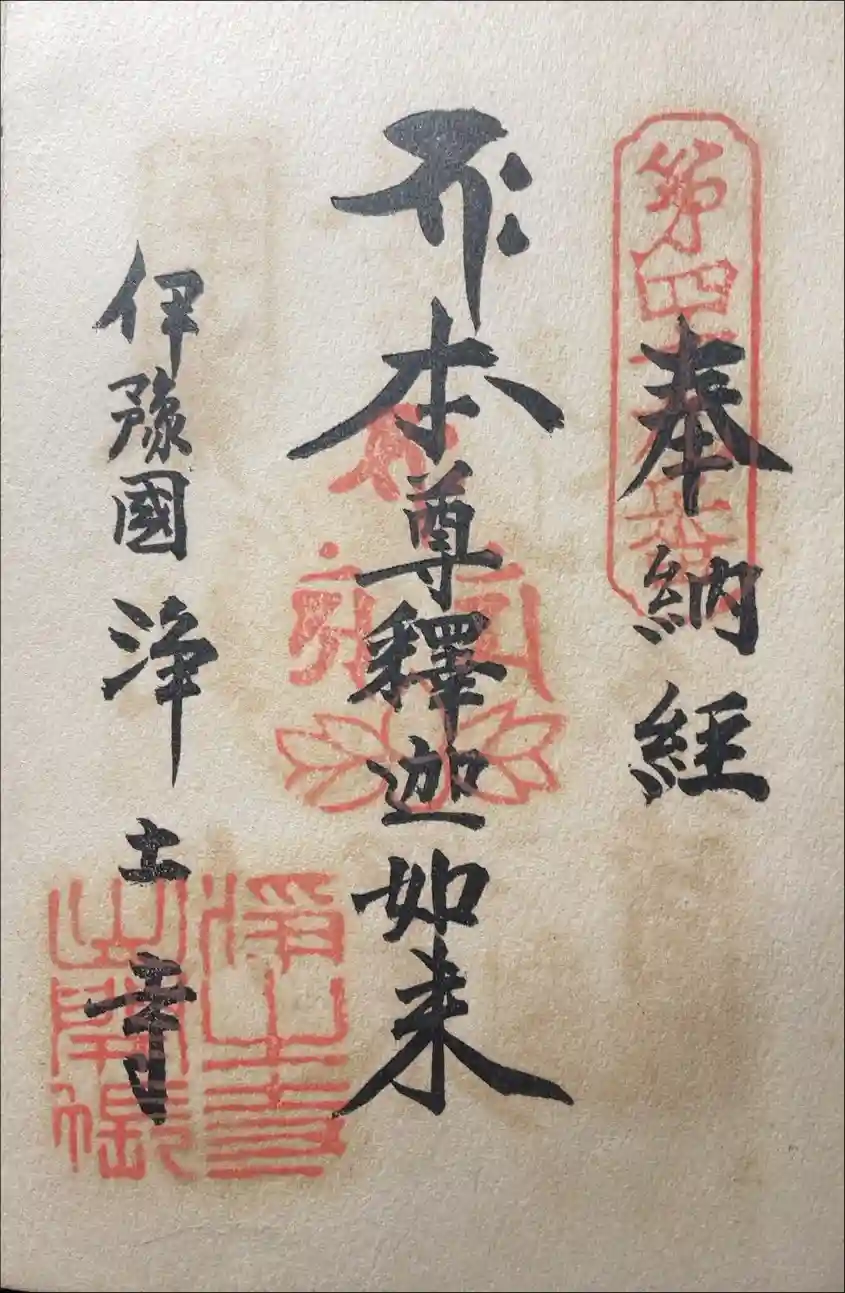 第四十九番
奉納経
𑖥𑖾 本尊釋迦如来
伊豫國 浄土寺
浄土寺